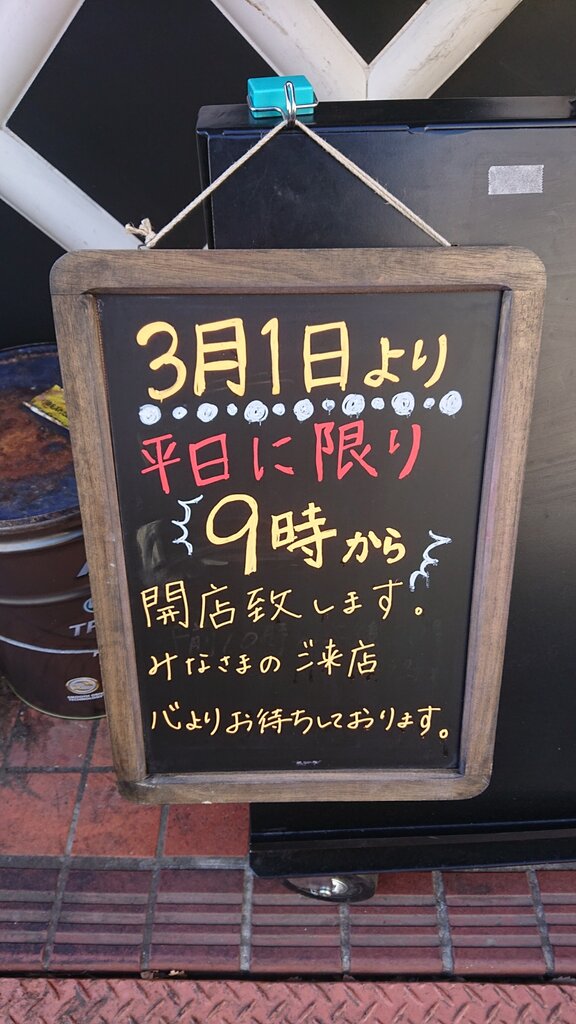 3月1日より
平日に限り
9時から
開店致します。
みなさまのご来店
心よりお待ちしております。